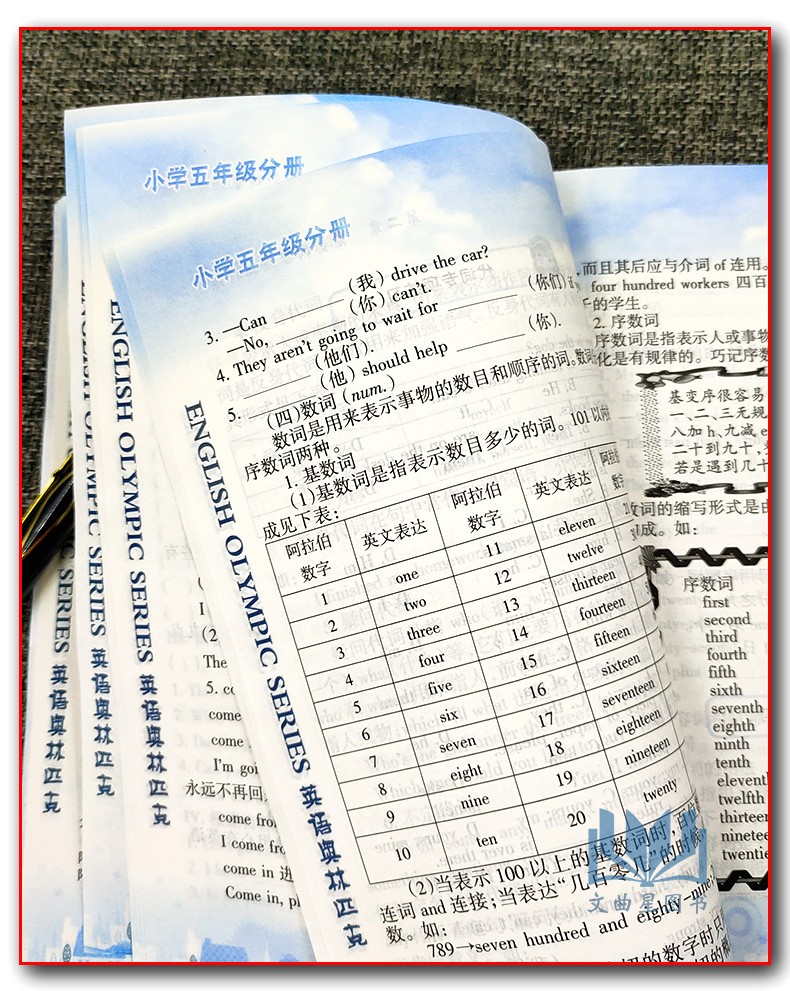 小学五年级分册
小学五年级分册
3. —Can ________ (我) drive the car?
—No, ________ (你) can't.
4. They aren't going to wait for ________ (你们)
________ (他们).
5. ________ (他) should help ________ (你).
(四)数词 (num.)
数词是用来表示事物的数目和顺序的词。数词
序数词两种。
1. 基数词
(1)基数词是指表示数目多少的词。101以内
成见下表:
阿拉伯数字 英文表达 阿拉伯数字 英文表达 阿拉伯数字
1 one 11 eleven
2 two 12 twelve
3 three 13 thirteen
4 four 14 fourteen
5 five 15 fifteen
6 six 16 sixteen
7 seven 17 seventeen
8 eight 18 eighteen
9 nine 19 nineteen
10 ten 20 twenty
(2)当表示 100 以上的基数词时,
连词 and 连接;当表达“几百零几”的时候
数。如:
789→seven hundred and eighty-nine;
的数字时只
ENGLISH OLYMPIC SERIES 英语奥林匹克
ENGLISH OLYMPIC SERIES 英语奥林匹克
ENGLISH OLYMPIC SERIES 英语奥林匹克
SERIES 英语奥林匹克
(2
The
5. co
come
come
I'm goi
永远不再回
come fro
I come fr
come in 进
Come in, pl
,而且其后应与介词 of 连用。
four hundred workers 四百
的学生。
2. 序数词
序数词是指表示人或事物
化是有规律的。巧记序数
基变序很容易
一、二、三无规
八加 h、九减 e
二十到九十,
若是遇到几十
数词的缩写形式是由
成。如:
序数词
first
second
third
fourth
fifth
sixth
seventh
eighth
ninth
tenth
eleventh
twelfth
thirteen
ninetee
twentie
文曲星图书